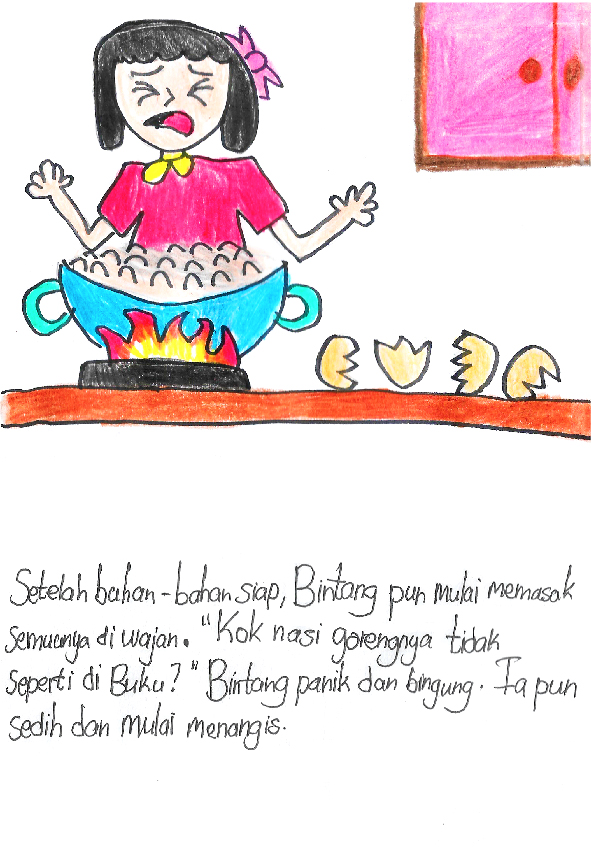 Setelah bahan-bahan siap, Bintang pun mulai memasak
semuanya di wajan. "Kok nasi gorengnya tidak
seperti di Buku?" Bintang panik dan bingung. Ia pun
sedih dan mulai menangis.